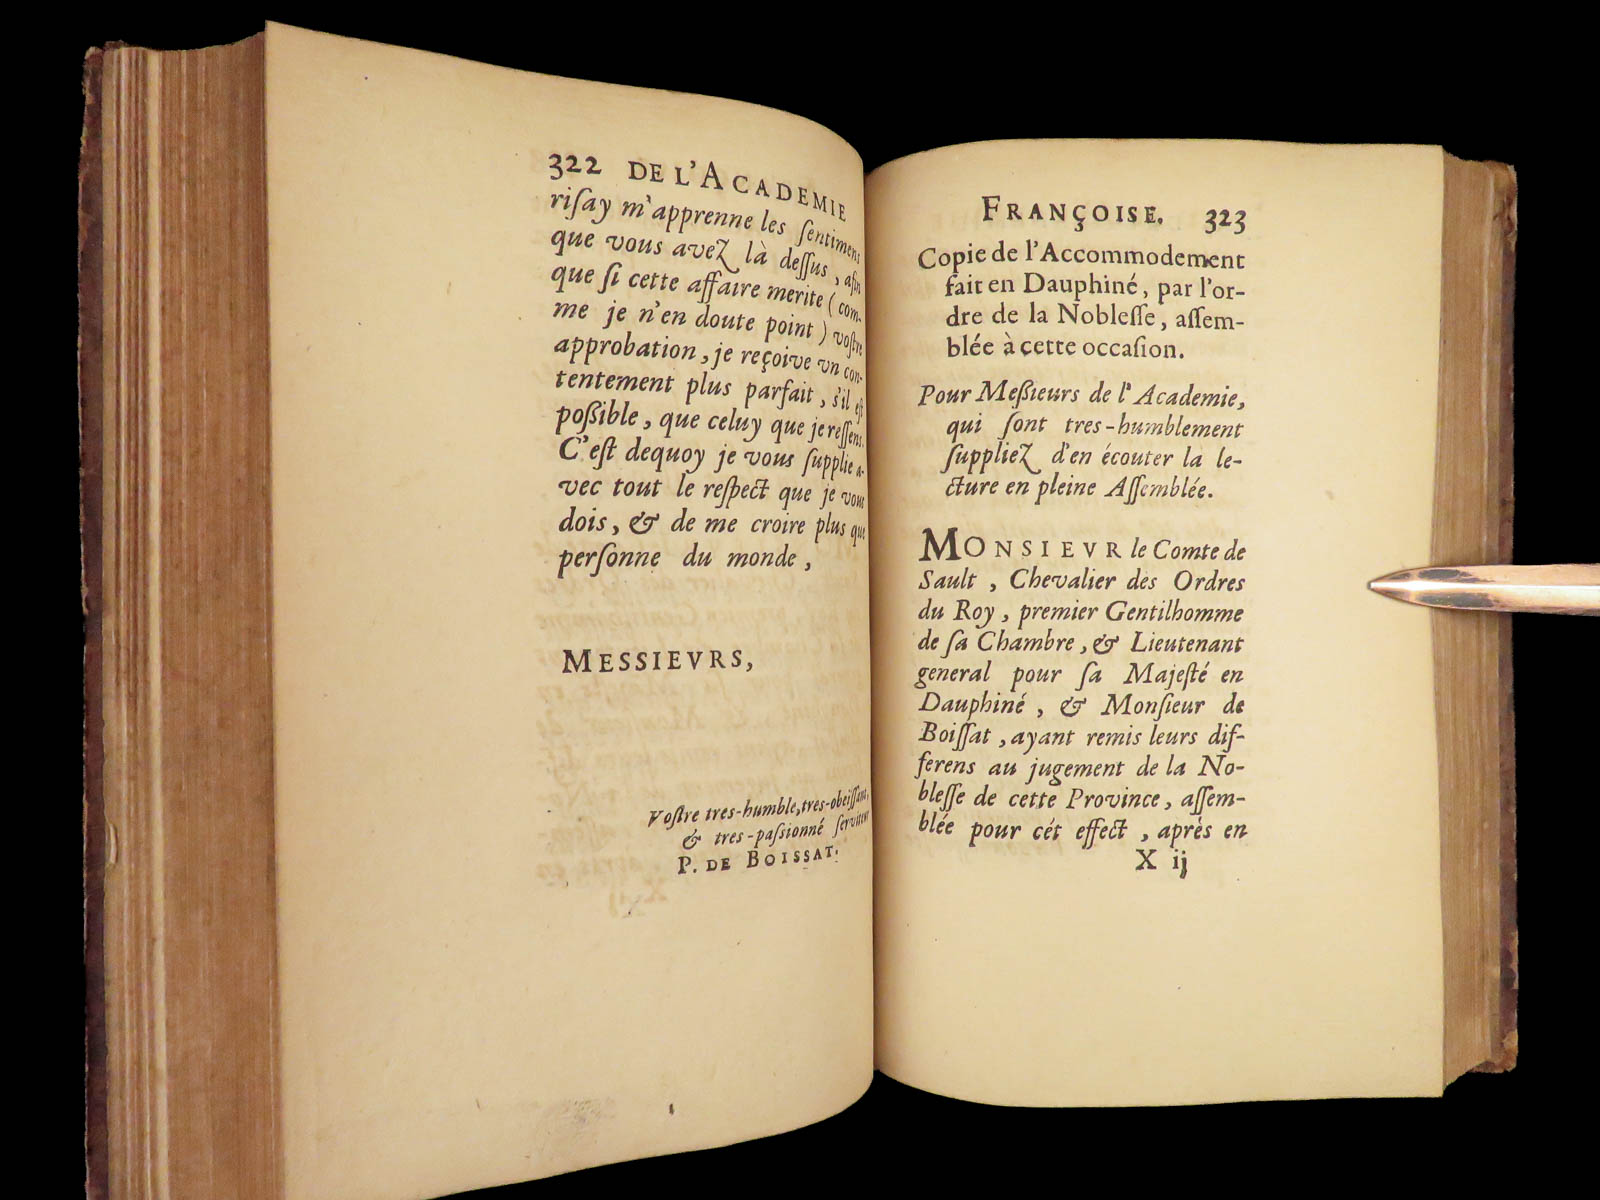 322 DE L'ACADEMIE
riſay m'apprenne les ſentimens
que vous avez là deſſus, afin
que ſi cette affaire merite (com-
me je n'en doute point) voſtre
approbation, je reçoive vn con-
tentement plus parfait, s'il eſt
poßible, que celuy que je reſſens.
C'eſt dequoy je vous ſupplie a-
vec tout le reſpect que je vous
dois, & de me croire plus que
perſonne du monde,
MESSIEVRS,
Voſtre tres-humble, tres-obeiſſant,
& tres-paſionné ſerviteur
P. DE BOISSAT.
FRANÇOISE. 323
Copie de l'Accommodement
fait en Dauphiné, par l'or-
dre de la Nobleſſe, aſſem-
blée à cette occaſion.
Pour Meßieurs de l'Academie,
qui ſont tres-humblement
ſuppliez d'en écouter la le-
cture en pleine Aſſemblée.
MONSIEVR le Comte de
Sault, Chevalier des Ordres
du Roy, premier Gentilhomme
de ſa Chambre, & Lieutenant
general pour ſa Majeſté en
Dauphiné, & Monſieur de
Boiſſat, ayant remis leurs dif-
ferens au jugement de la No-
bleſſe de cette Province, aſſem-
blée pour cét effect, après en
X ij